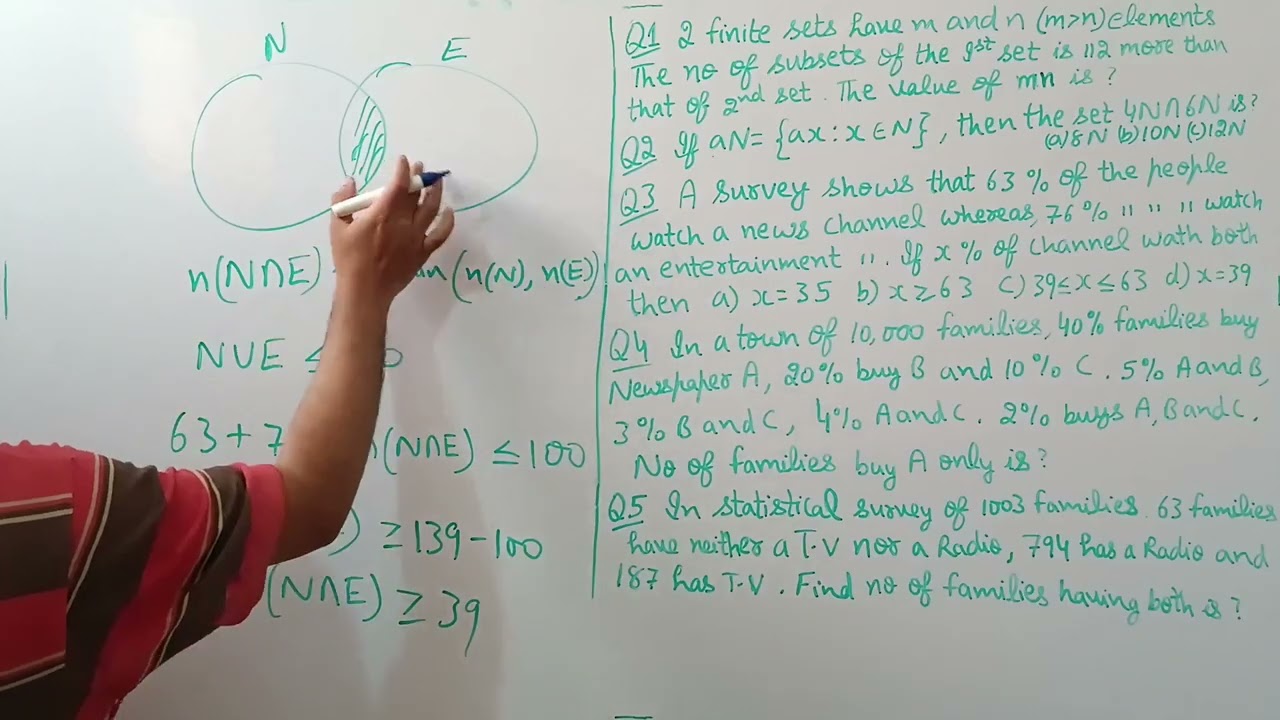 N E
n(N∩E) (n(N), n(E))
NUE ≤
63 + 7 (N∩E) ≤ 100
) ≥ 139 - 100
(N∩E) ≥ 39
Q1 2 finite sets have m and n (m>n) elements
The no of subsets of the 1st set is 112 more than
that of 2nd set. The value of mn is ?
Q2 If aN = {ax : x ∈ N}, then the set 4N∩6N is?
(a) 8N (b) 10N (c) 12N
Q3 A survey shows that 63 % of the people
watch a news channel whereas, 76 % " " " watch
an entertainment ". If x % of channel wath both
then a) x = 35 b) x ≥ 63 c) 39 ≤ x ≤ 63 d) x = 39
Q4 In a town of 10,000 families, 40% families buy
Newspaper A, 20% buy B and 10 % C. 5% A and B,
3 % B and C, 4% A and C. 2% buys A, B and C.
No of families buy A only is?
Q5 In statistical survey of 1003 families. 63 families
have neither a T.V nor a Radio, 794 has a Radio and
187 has T.V. Find no of families having both is ?